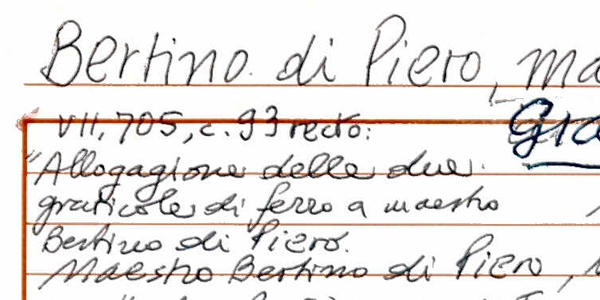 Bertino di Piero, ma
VII, 705, c. 93 recto:
Gra
"Allogagione delle due
graticole di ferro a maestro
Bertino di Piero.
Maestro Bertino di Piero,